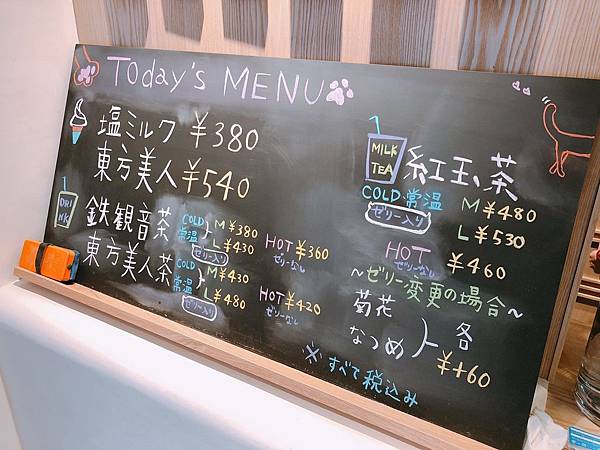 Today's MENU
塩ミルク ¥380
東方美人 ¥540
DRINK
鉄観音茶 COLD 常温 M ¥380 L ¥430 ゼリー入り HOT ¥360 ゼリーなし
東方美人茶 COLD 常温 M ¥430 L ¥480 ゼリー入り HOT ¥420 ゼリーなし
MILK TEA
紅玉茶
COLD・常温 M ¥480
ゼリー入り L ¥530
HOT ¥460
ゼリーなし
~ゼリー変更の場合~
菊花
なつめ 各 ¥+60
※すべて税込み